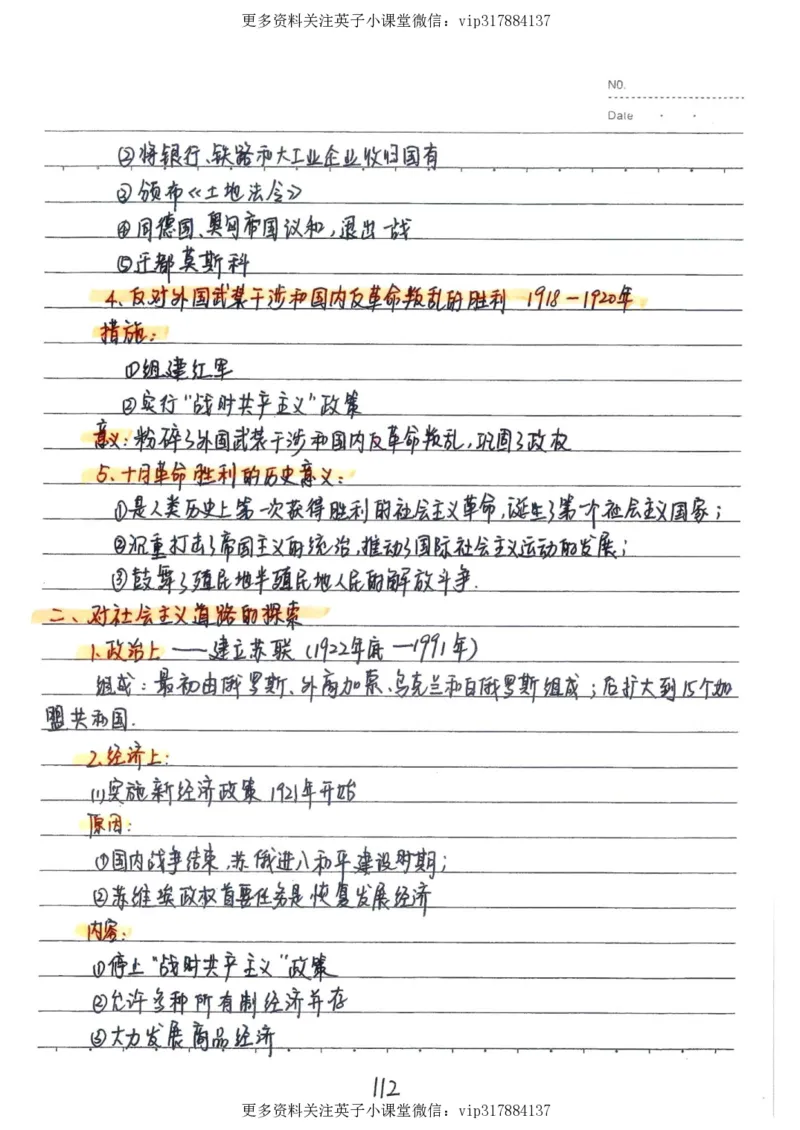 更多资料关注英子小课堂微信：vip317884137
NO.
Date
②将银行、铁路和大工业企业收归国有
③颁布《土地法令》
④同德国、奥匈帝国议和，退出一战
⑤迁都莫斯科
4、反对外国武装干涉和国内反革命叛乱的胜利 1918－1920年
措施：
①组建红军
②实行“战时共产主义”政策
意义：粉碎了外国武装干涉和国内反革命叛乱，巩固了政权
5、十月革命胜利的历史意义：
①是人类历史上第一次获得胜利的社会主义革命，诞生了第一个社会主义国家；
②沉重打击了帝国主义的统治，推动了国际社会主义运动的发展；
③鼓舞了殖民地半殖民地人民的解放斗争.
二、对社会主义道路的探索
1.政治上——建立苏联（1922年底—1991年）
组成：最初由俄罗斯、外高加索、乌克兰和白俄罗斯组成；后扩大到15个加
盟共和国.
2.经济上：
(1)实施新经济政策 1921年开始
原因：
①国内战争结束，苏俄进入和平建设时期；
②苏维埃政权首要任务是恢复发展经济
内容：
①停止“战时共产主义”政策
②允许多种所有制经济并存
③大力发展商品经济
112
更多资料关注英子小课堂微信：vip317884137